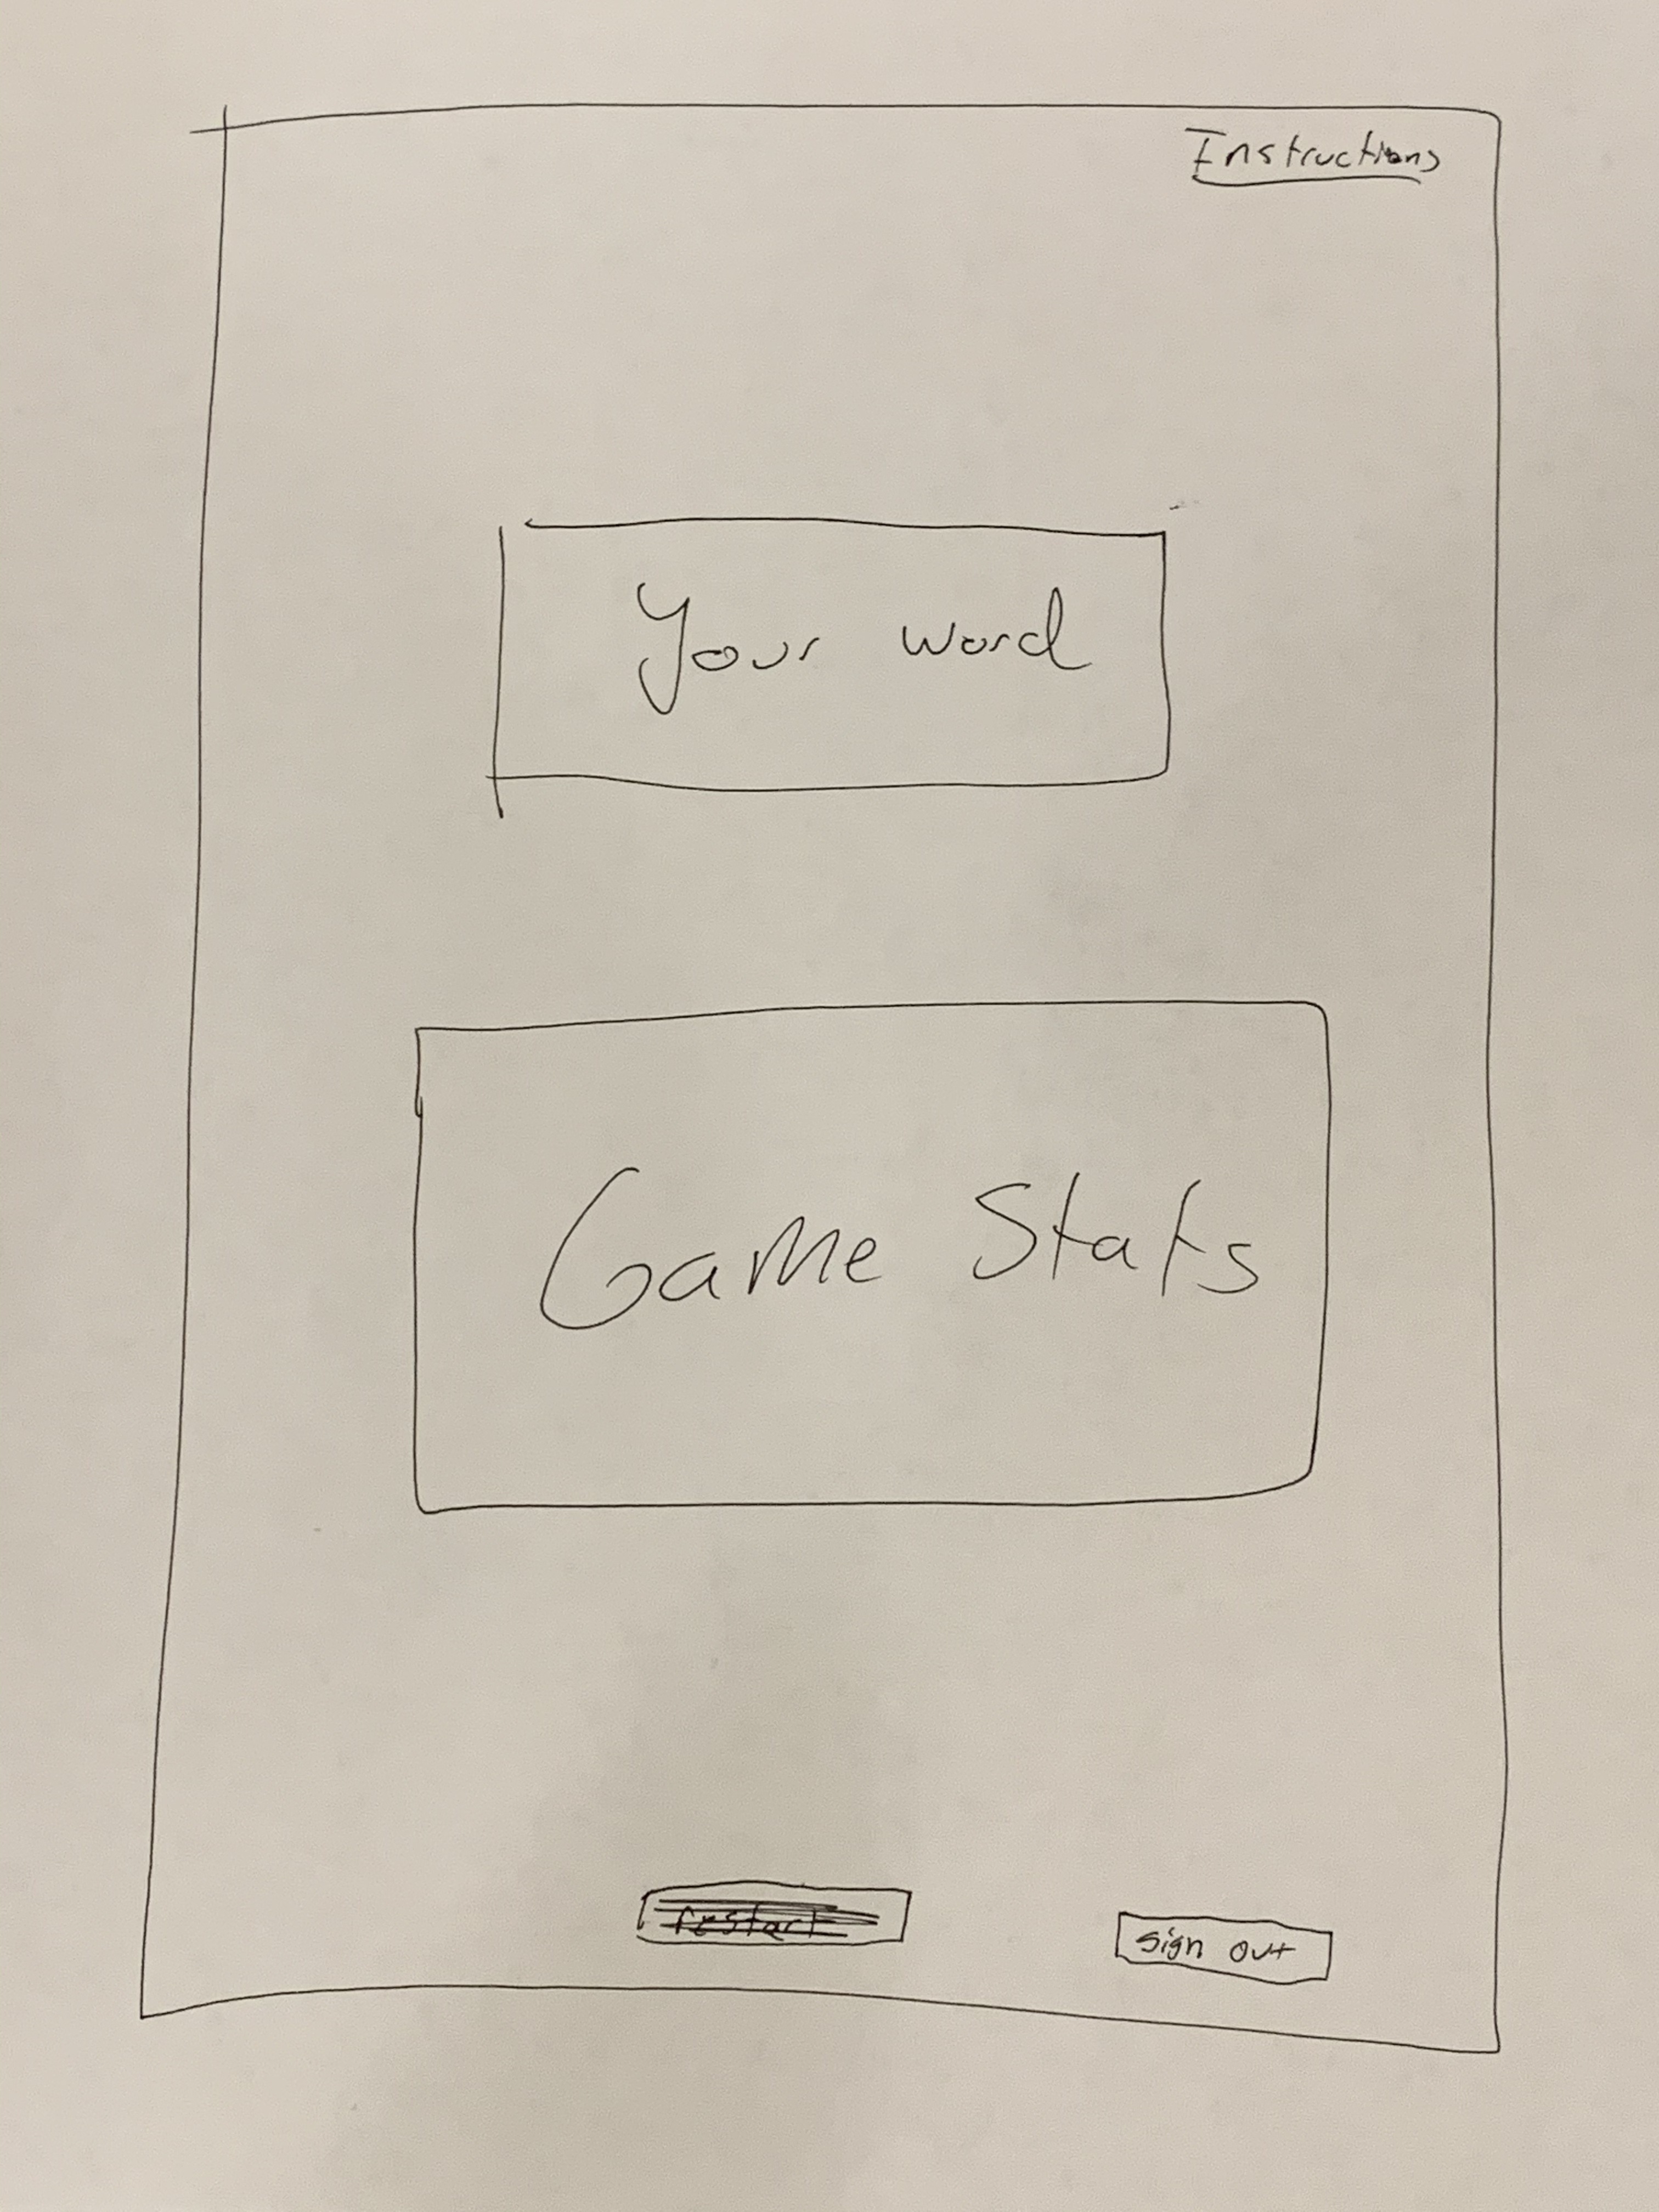 Instructions
Your word
Game Stats
restart
sign out